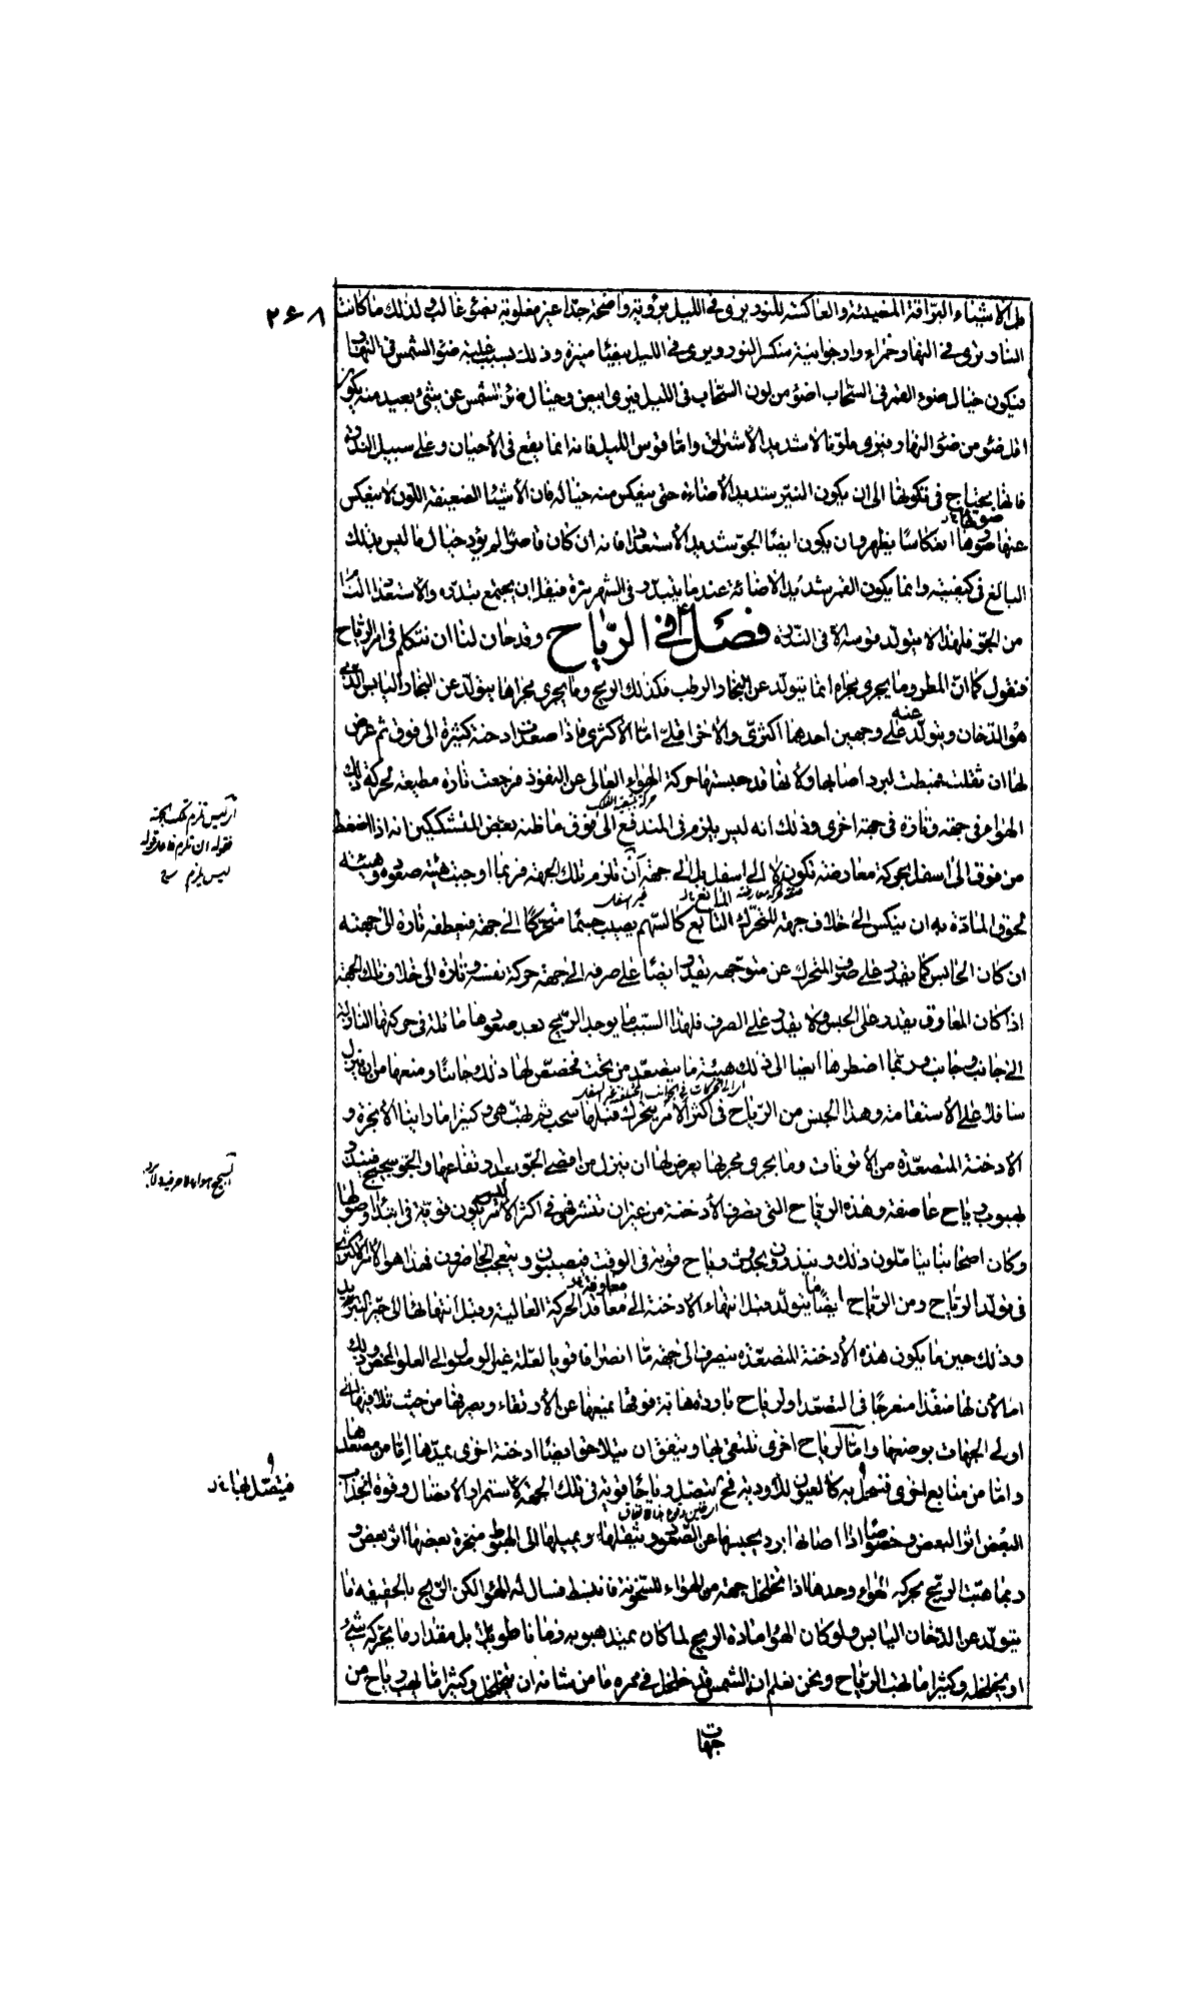 ٢۶٨
الاشياء البراقة المضيئة والعاكسة للنور يرى فى الليل برؤية واضحة جدا غير مغلوبة بضوء غالب ولذلك ما كانت
النار ترى فى النهار حمراء وارجوانية منكسر النور ويرى فى الليل بيضاء منيرة وذلك بسبب غلبة ضوء الشمس فى النهار
فيكون خيال ضوء القمر فى السحاب اضوء من لون السحاب فى الليل فيرى ابيض وخيال ضوء الشمس عن شىء بعيد منه يكون
اقل ضوء من ضوء النهار فيرى ملونا لا شديد الاشراق واما قوس الليل فانه انما يقع فى الأحيان وعلى سبيل الندرة
فانها يحتاج فى تكونها الى ان يكون النير شديد الأضاءة حتى ينعكس منه خيال فان الأشياء الضعيفة اللون لا ينعكس
عنها ضوءها انعكاسا يظهر وان يكون ايضا الجو شديد الأستعداد فانه ان كان قاصرا لم يؤد خيال ما ليس بذلك
البالغ فى كيفيته وانما يكون القمر شديد الاضائة عندما يتبدر فى الشهر مرة فيقل ان يجتمع تبدره والأستعداد التام
من الجو فلهذا لا يتولد قوسه الا فى الندرة فصل فى الرياح وقد حان لنا ان نتكلم فى امر الرياح
فنقول كما ان المطر وما يجرى مجراه انما يتولد عن البخار الرطب فكذلك الريح وما يجرى مجراها يتولد عن البخار اليابس الذى
هو الدخان ويتولد عنه على وجهين احدهما اكثرى والأخر اقلى اما الأكثرى فاذا صعدت ادخنة كثيرة الى فوق ثم عرض
لها ان ثقلت فهبطت لبرد اصابها ولأنها قد حبستها حركة الهواء العالى عن النفوذ فرجعت تارة مطيعة لحركة ذلك
الهواء فى جهة وتارة فى جهة اخرى وذلك انه ليس يلزم فى المندفع الى فوق ما ظنه بعض المتشككين انه اذا اضغط
من فوق الى اسفل بحركة معارضة تكون لا الى اسفل بل الى جهة ان تلزم تلك الجهة فربما اوجبت هيئة صعوده وهيئة
لحوق المادة به ان ينكس الى خلاف جهة المتحرك التابع كالسهم يصيب جسما متحركا الى جهة فيعطفه تارة الى جهته
ان كان الحابس كما يقدر على صرف المتحرك عن متوجهه يقدر ايضا على صرفه الى جهة حركة نفسه وتارة الى خلاف تلك الجهة
اذا كان المعاوق يقدر على الحبس ولا يقدر على الصرف فلهذا السبب ما يوجد الريح بعد صعودها مائلة فى حركتها النازلة
الى جانب وجانب وربما اضطرها ايضا الى ذلك هيئة ما يتصعد من تحت فخصص لها ذلك جانبا ومنعها من ان ينزل
سافلا على الأستقامة وهذا الجنس من الرياح فى اكثر الأمر يتحرك قبلها سحب ثم تهب هى وكثيرا ما راينا الأبخرة و
الادخنة المتصعدة من الأتونات وما يجرى مجراها يعرض لها ان ينزل من اقصى الجو بعد ارتفاعها والجو سجسج فينذر
لهبوب رياح عاصفة وهذه الرياح التى تصرف الأدخنة من غير ان تنشر فهى فى اكثر الأمر ليس يكون قوية فى ابتداء وصولها
وكان اصحابنا يتاملون ذلك وينذرون بحدوث رياح قوية فى الوقت فيصيبون ويتعجب الحاضرون فهذا هو الأمر الأكثرى
فى تولد الرياح ومن الرياح ايضا ما يتولد قبل انتهاء الادخنة الى معاوقة الحركة العالية وقبل انتهائها الى حيز التبريد
وذلك حين ما يكون هذه الأدخنة المتصعدة ينصرف الى جهة ما انصرافا قويا لعلة غير الوصول الى العلو المحض وذلك
اما لأن لها منفذا منعرجا فى التصعد او لرياح باردة هابة فوقها يمنعها عن الأرتقاء ويصرفها من حيث تلاقيها الى
اولى الجهات بوضعها واما لرياح اخرى تلتقى بها ويتفق ان يتلاحق ايضا ادخنة اخرى يمدها اما من مصعدها
واما من منابع اخرى فتتصل به كالعيون للأودية فح يتصل رياحا قوية فى تلك الجهة لاستمرار الأتصال وقوة انجذاب
البعض اثر البعض وخصوصا اذا اصابها برد يحبسها عن الصعود ويثقلها ويميلها الى الهبوط منجرة بعضها اثر بعض و
ربما هبت الريح بحركة الهواء وحدها اذا تخلخل جهة من الهواء للسخونة فانبسط فسال له الهواء لكن الريح بالحقيقة ما
يتولد عن الدخان اليابس ولو كان الهواء مادة الريح لما كان يمتد هبوبه زمانا طويلا بل مقدار ما يحركه شىء
او يخلخله وكثيرا ما تهب الرياح ونحن نعلم ان الشمس قد خلخل فى ممره ما من شانه ان يتخلخل وكثيرا ما تهب رياح من
جهات
فيتصل بها